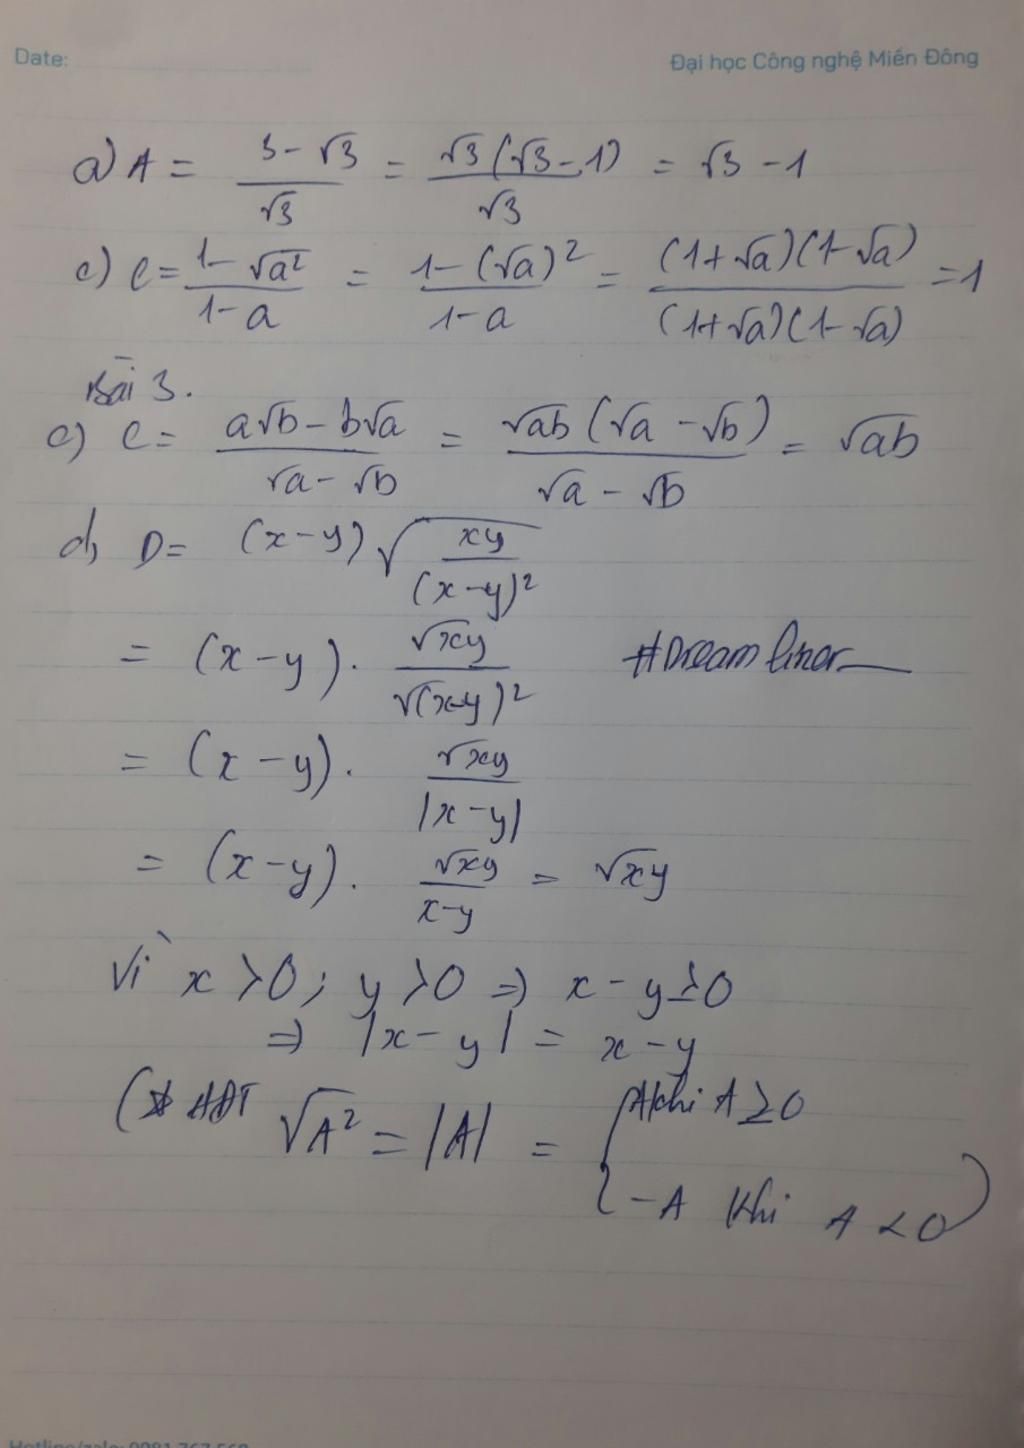 Date:
Đại học Công nghệ Miền Đông
a) A = (3 - √3)/√3 = √3(√3 - 1)/√3 = √3 - 1
c) C = (1 - √a²)/(1 - a) = (1 - (√a)²)/(1 - a) = (1+√a)(1-√a)/(1+√a)(1-√a) = 1
Bài 3.
c) C = (a√b - b√a)/(√a - √b) = √ab(√a - √b)/(√a - √b) = √ab
d, D = (x-y)√(xy/(x-y)²)
= (x-y). √xy/√(x-y)²
#Dreamliner
= (x-y). √xy/|x-y|
= (x-y). √xy/(x-y) = √xy
Vì x > 0; y > 0 ⇒ x - y ≥ 0
⇒ |x-y| = x-y
(* ADT √A² = |A| = { A khi A ≥ 0
-A khi A < 0)